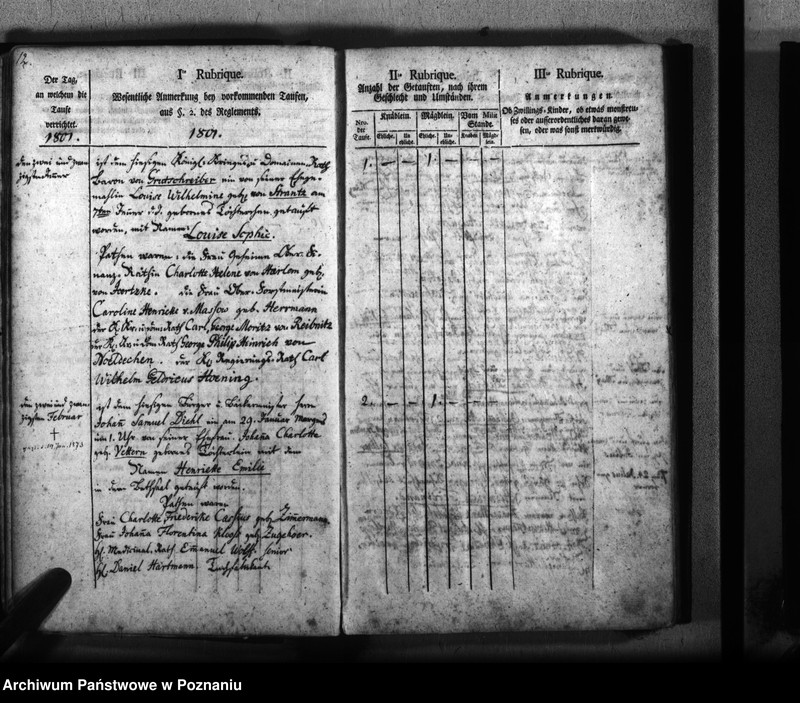 12.
Der Tag,
an welchem die
Taufe
verrichtet.
1801.
Iᵉ Rubrique.
Wesentliche Anmerkung bey vorkommenden Taufen,
aus §. 2. des Reglements,
1801.
den zwei und zwan
zigsten Jänner
ist dem hiesigen Königl. Domainen Rath
Baron von ein von seiner Ehege-
mahlin Louise Wilhelmine geb. von Strantz am
7ten Jänner d. J. gebornes Töchterchen getauft
worden, mit Namen:
Louise Sophie.
Pathen waren: die Frau Geheime Ober-Fi-
nanz-Räthin Charlotte Helene von Harlem geb.
von die Frau Ober-Forstmeisterin
Caroline Henriette v. Massow geb. Herrmann
der Rath Carl George Moritz von Reibnitz
der Rath George Philip Hinrich von
Noeldechen. der Regierungs-Rath Carl
Wilhelm Hoening.
den zwei und zwan
zigsten Februar
†
ist dem hiesigen Bürger u. Bäckermeister Herrn
Johañ Samuel Diehl ein am 29. Januar Morgens
um 1. Uhr von seiner Ehefrau Johaña Charlotte
geb. Vettern gebornes Töchterlein mit dem
Namen Henriette Emilie
in dem Bethsaal getauft worden.
Pathen waren
Frau Charlotte Friederike Cassius geb. Zimmermann
Frau Johaña Florentina Kloose geb. Zugehoer.
H. Medicinal-Rath Emanuel Wolff senior
H. Daniel Hartmann. Tuchfabrikant
II. Rubrique.
Anzahl der Getauften, nach ihrem
Geschlecht und Umständen.
Nro.
der
Taufe.
Knäblein. Mägdlein. Vom Milit.
Stande.
Eheliche. Un-
eheliche. Eheliche. Un-
eheliche. Knäblein Mägd-
lein.
1. — — 1. — — —
2. — — 1. — — —
III. Rubrique.
Anmerkungen
Ob Zwillings-Kinder, ob etwas monstreu-
ses oder ausserordentliches daran gewe-
sen, oder was sonst merkwürdig.
Archiwum Państwowe w Poznaniu